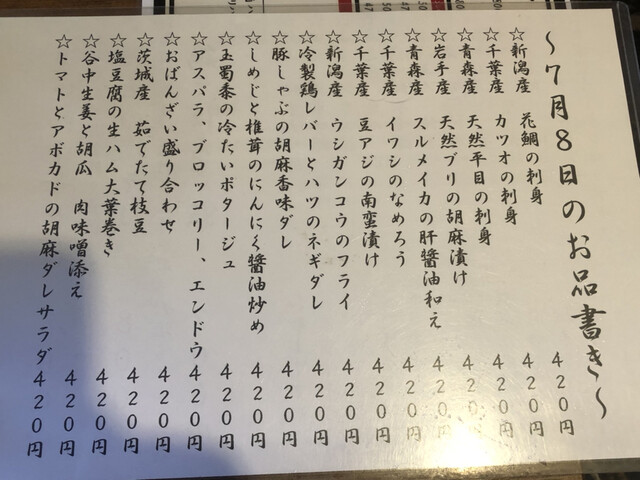 ～7月8日のお品書き～
☆新潟産 花鯛の刺身 420円
☆千葉産 カツオの刺身 420円
☆青森産 天然平目の刺身 420円
☆岩手産 天然ブリの胡麻漬け 420円
☆青森産 スルメイカの肝醤油和え 420円
☆千葉産 イワシのなめろう 420円
☆千葉産 豆アジの南蛮漬け 420円
☆新潟産 ウシガンコウのフライ 420円
☆冷製鶏レバーとハツのネギダレ 420円
☆豚しゃぶの胡麻香味ダレ 420円
☆しめじと椎茸のにんにく醤油炒め 420円
☆玉蜀黍の冷たいポタージュ 420円
☆アスパラ、ブロッコリー、エンドウ 420円
☆おばんざい盛り合わせ 420円
☆茨城産 茹でたて枝豆 420円
☆塩豆腐の生ハム大葉巻き 420円
☆谷中生姜と胡瓜 肉味噌添え 420円
☆トマトとアボカドの胡麻ダレサラダ 420円